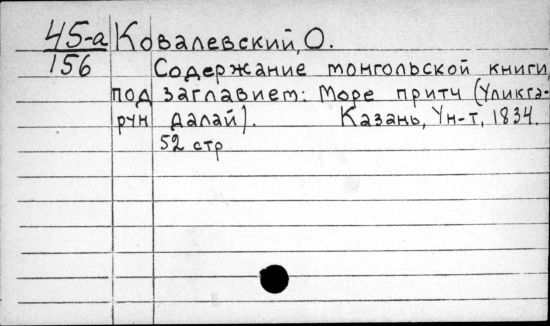 45-а Ковалевский, О.
156 Содержание монгольской книги
под заглавием: Море притч (Уликга-
рун далай). Казань, Ун-т, 1834.
52 стр